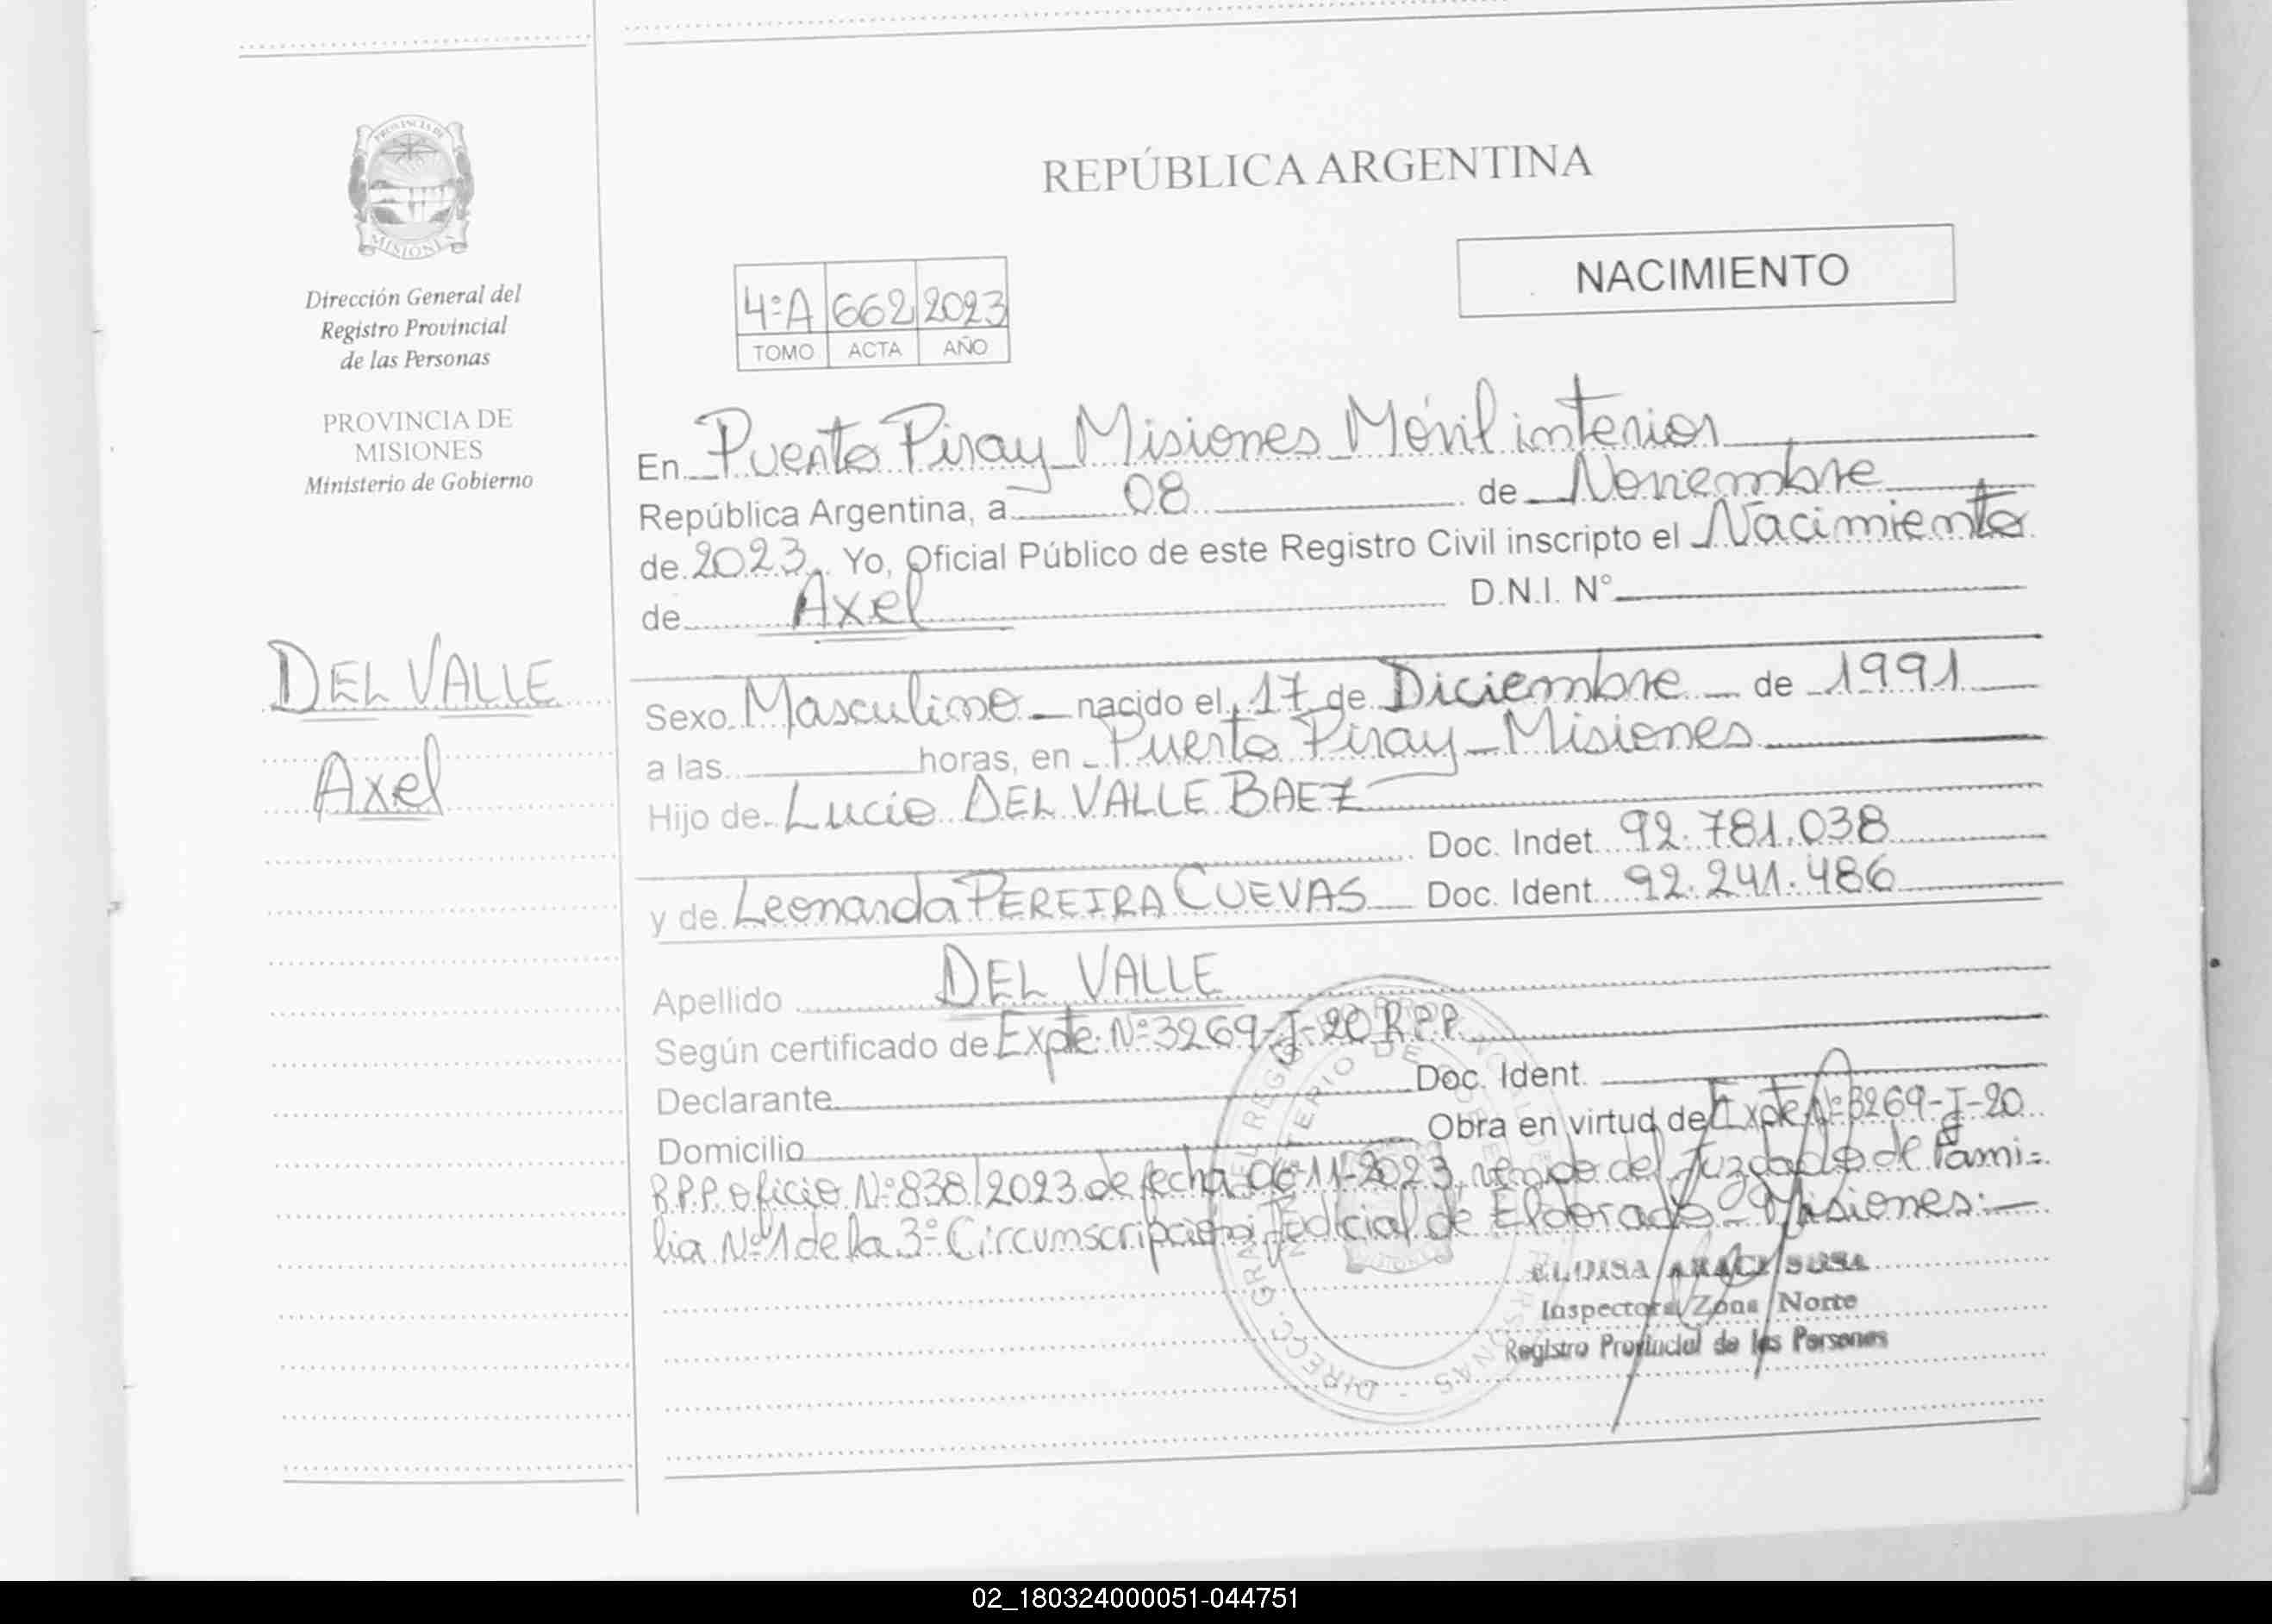 PROVINCIA DE
MISIONES
Dirección General del
Registro Provincial
de las Personas
PROVINCIA DE
MISIONES
Ministerio de Gobierno
DEL VALLE
Axel
REPÚBLICA ARGENTINA
NACIMIENTO
4ºA 662 2023
TOMO ACTA AÑO
En Puerto Piray Misiones Móvil interior
República Argentina, a 08 de Noviembre
de 2023 Yo, Oficial Público de este Registro Civil inscripto el Nacimiento
de Axel D.N.I. Nº
Sexo Masculino nacido el 17 de Diciembre de 1991
a las horas, en Puerto Piray - Misiones
Hijo de Lucio DEL VALLE BAEZ
Doc. Indet. 92.781.038
y de Leonarda PEREIRA CUEVAS Doc. Ident. 92.241.486
Apellido DEL VALLE
Según certificado de Expte. Nº 3269-J-20 R.P.P.
Declarante Doc. Ident.
Domicilio Obra en virtud de Expte Nº 3269-J-20
R.P.P. oficio Nº 838/2023 de fecha 06-11-2023, venido del Juzgado de Fami-
lia Nº 1 de la 3º Circunscripción Judicial de Eldorado - Misiones.-
SUSA
Inspectora Zona Norte
Registro Provincial de las Personas
02_180324000051-044751